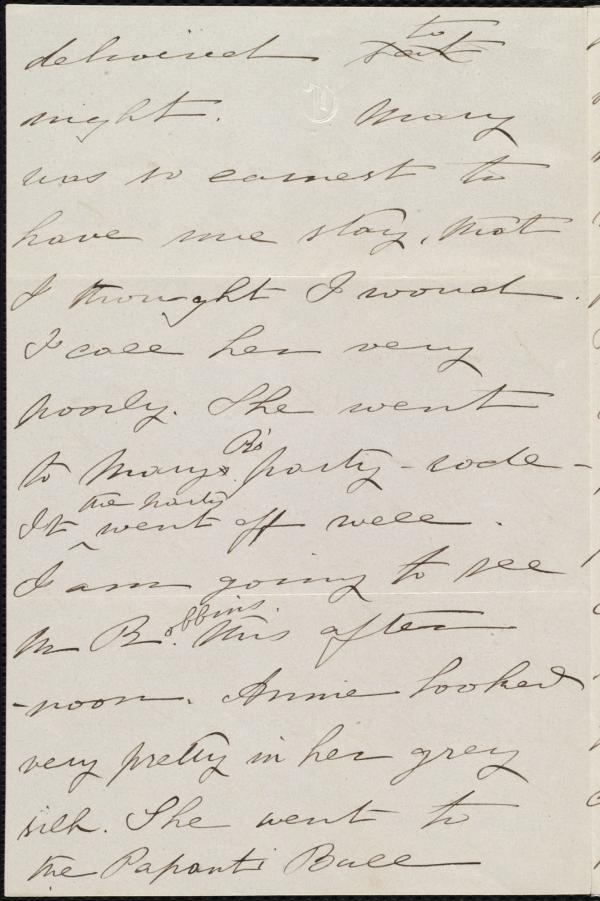 delivered to
night. Mary
was so earnest to
have me stay, that
I thought I would.
I call her very
poorly. She went
to Mary R's party - rode -
It the party went off well.
I am going to see
M Robbins. this after
-noon. Annie looked
very pretty in her grey
silk. She went to
the Papanti Ball